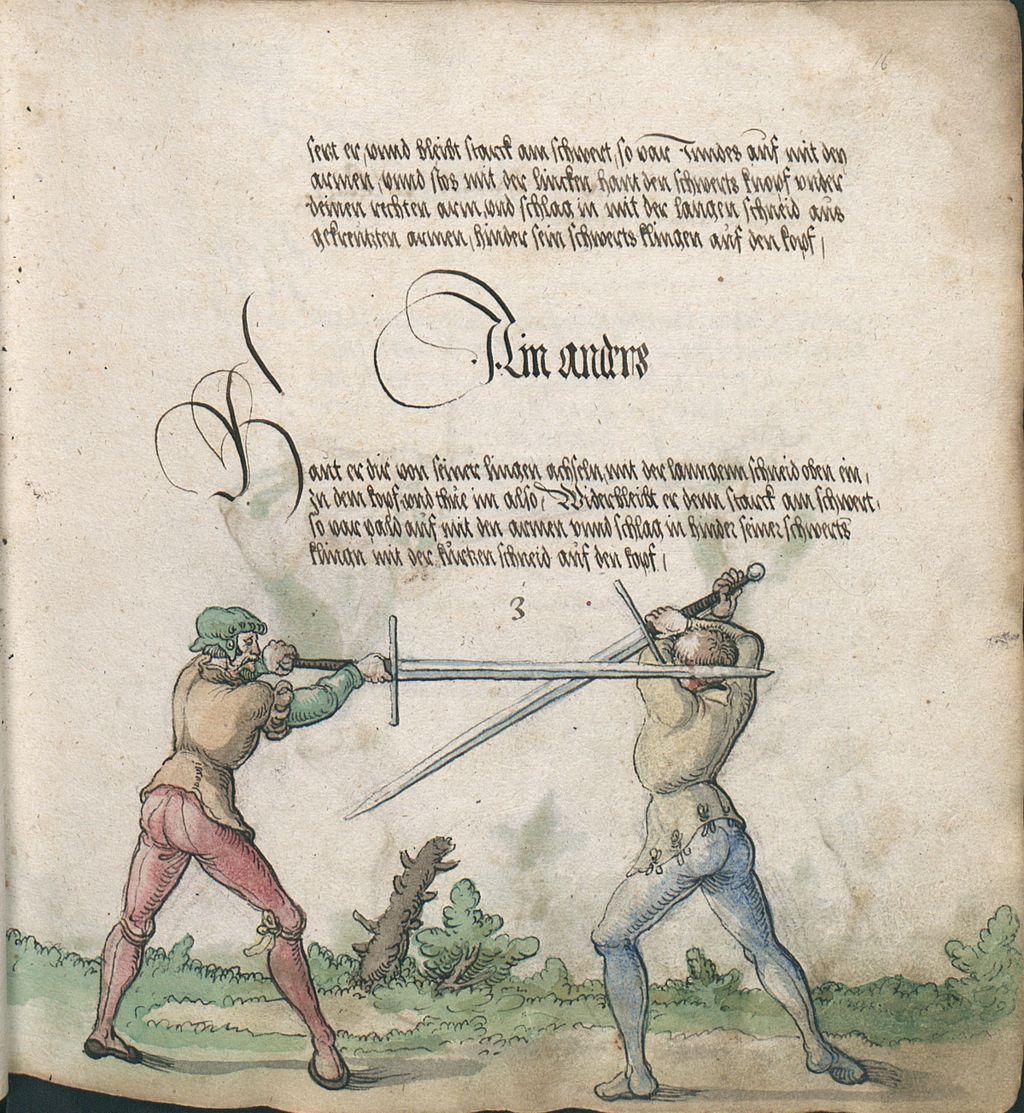 16
sert er, unnd bleibt starck am schwert, so var Inndes auf mit den
armen, unnd stos mit der lincken hant den schwerts knopf under
deinen rechten arm, und schlag in mit der langen schneid aus
gekreutzten armen, hinder sein schwerts klingen auf den kopf,
Ain anders
Haut er dir von seiner lingen achseln, mit der lanngenn schneid oben ein,
zu dem kopf, und thue im also, Wider bleibt er denn starck am schwert,
so var pald auf mit den armen unnd schlag in hinder seiner schwerts
klingn mit der kurtzen schneid auf den kopf,
3